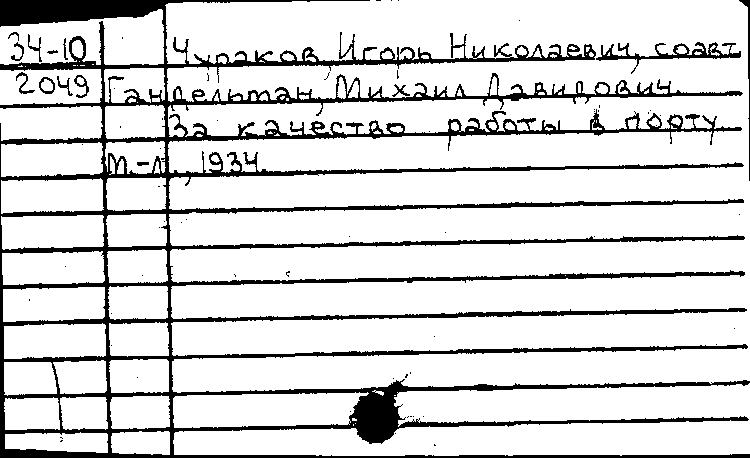 34-10 Чураков, Игорь Николаевич, соавт
2049 Гандельман, Михаил Давидович.
За качество работы в порту
М.-Л., 1934.